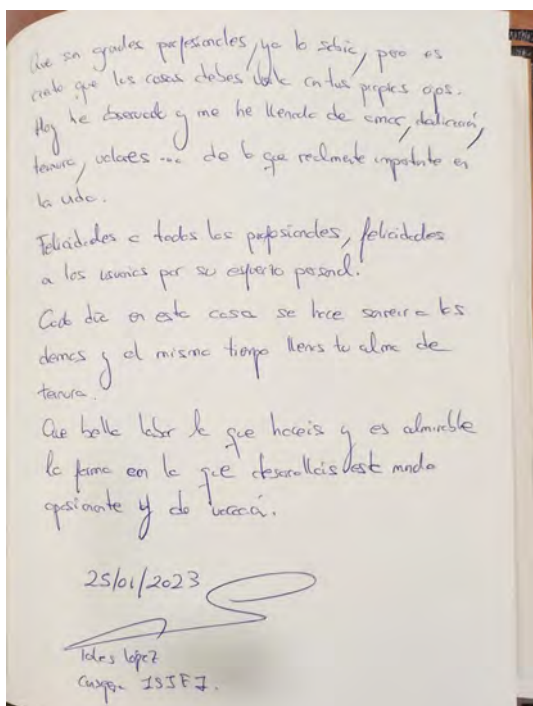 Que son grandes profesionales, ya lo sabía, pero es
cierto que las cosas debes verle en tus propios ojos.
Hoy he observado y me he llenado de amor, dedicación,
ternura, valores ... de lo que realmente importante en
la vida.
Felicidades a todos los profesionales, felicidades
a los usuarios por su esfuerzo personal.
Cada día en esta casa se hace sonreir a los
demas y al mismo tiempo llenas tu alma de
ternura.
Que bella labor la que haceis y es admirable
la forma em la que desarrollais este mundo
apasionante y de vocación.
25/01/2023
López
ISJF7.